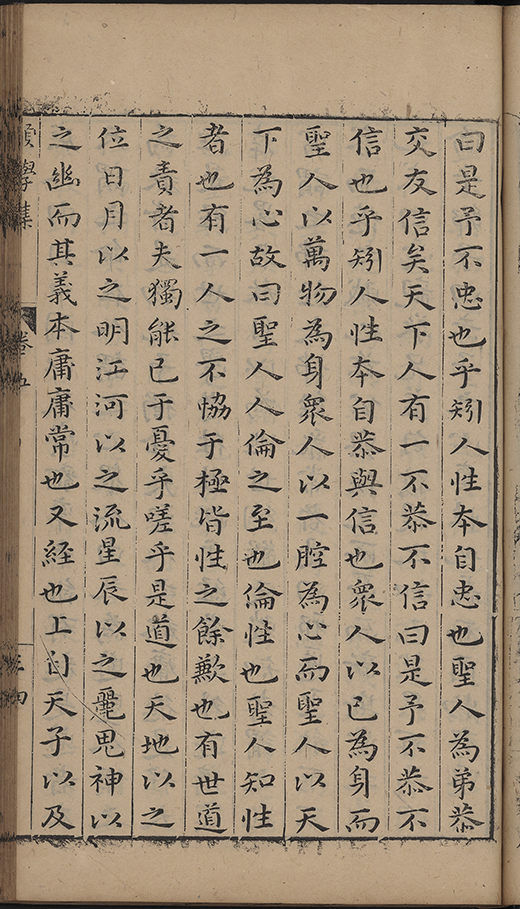 曰是予不忠也乎矧人性本自忠也聖人為弟恭
交友信矣天下人有一不恭不信曰是予不恭不
信也乎矧人性本自恭與信也衆人以已為身而
聖人以萬物為身衆人以一腔為心而聖人以天
下為心故曰聖人人倫之至也倫性也聖人知性
者也有一人之不恊于極皆性之餘歉也有世道
之責者夫獨能已于憂乎嗟乎是道也天地以之
位日月以之明江河以之流星辰以之麗鬼神以
之幽而其義本庸庸常也又経也上自天子以及
學集 卷五